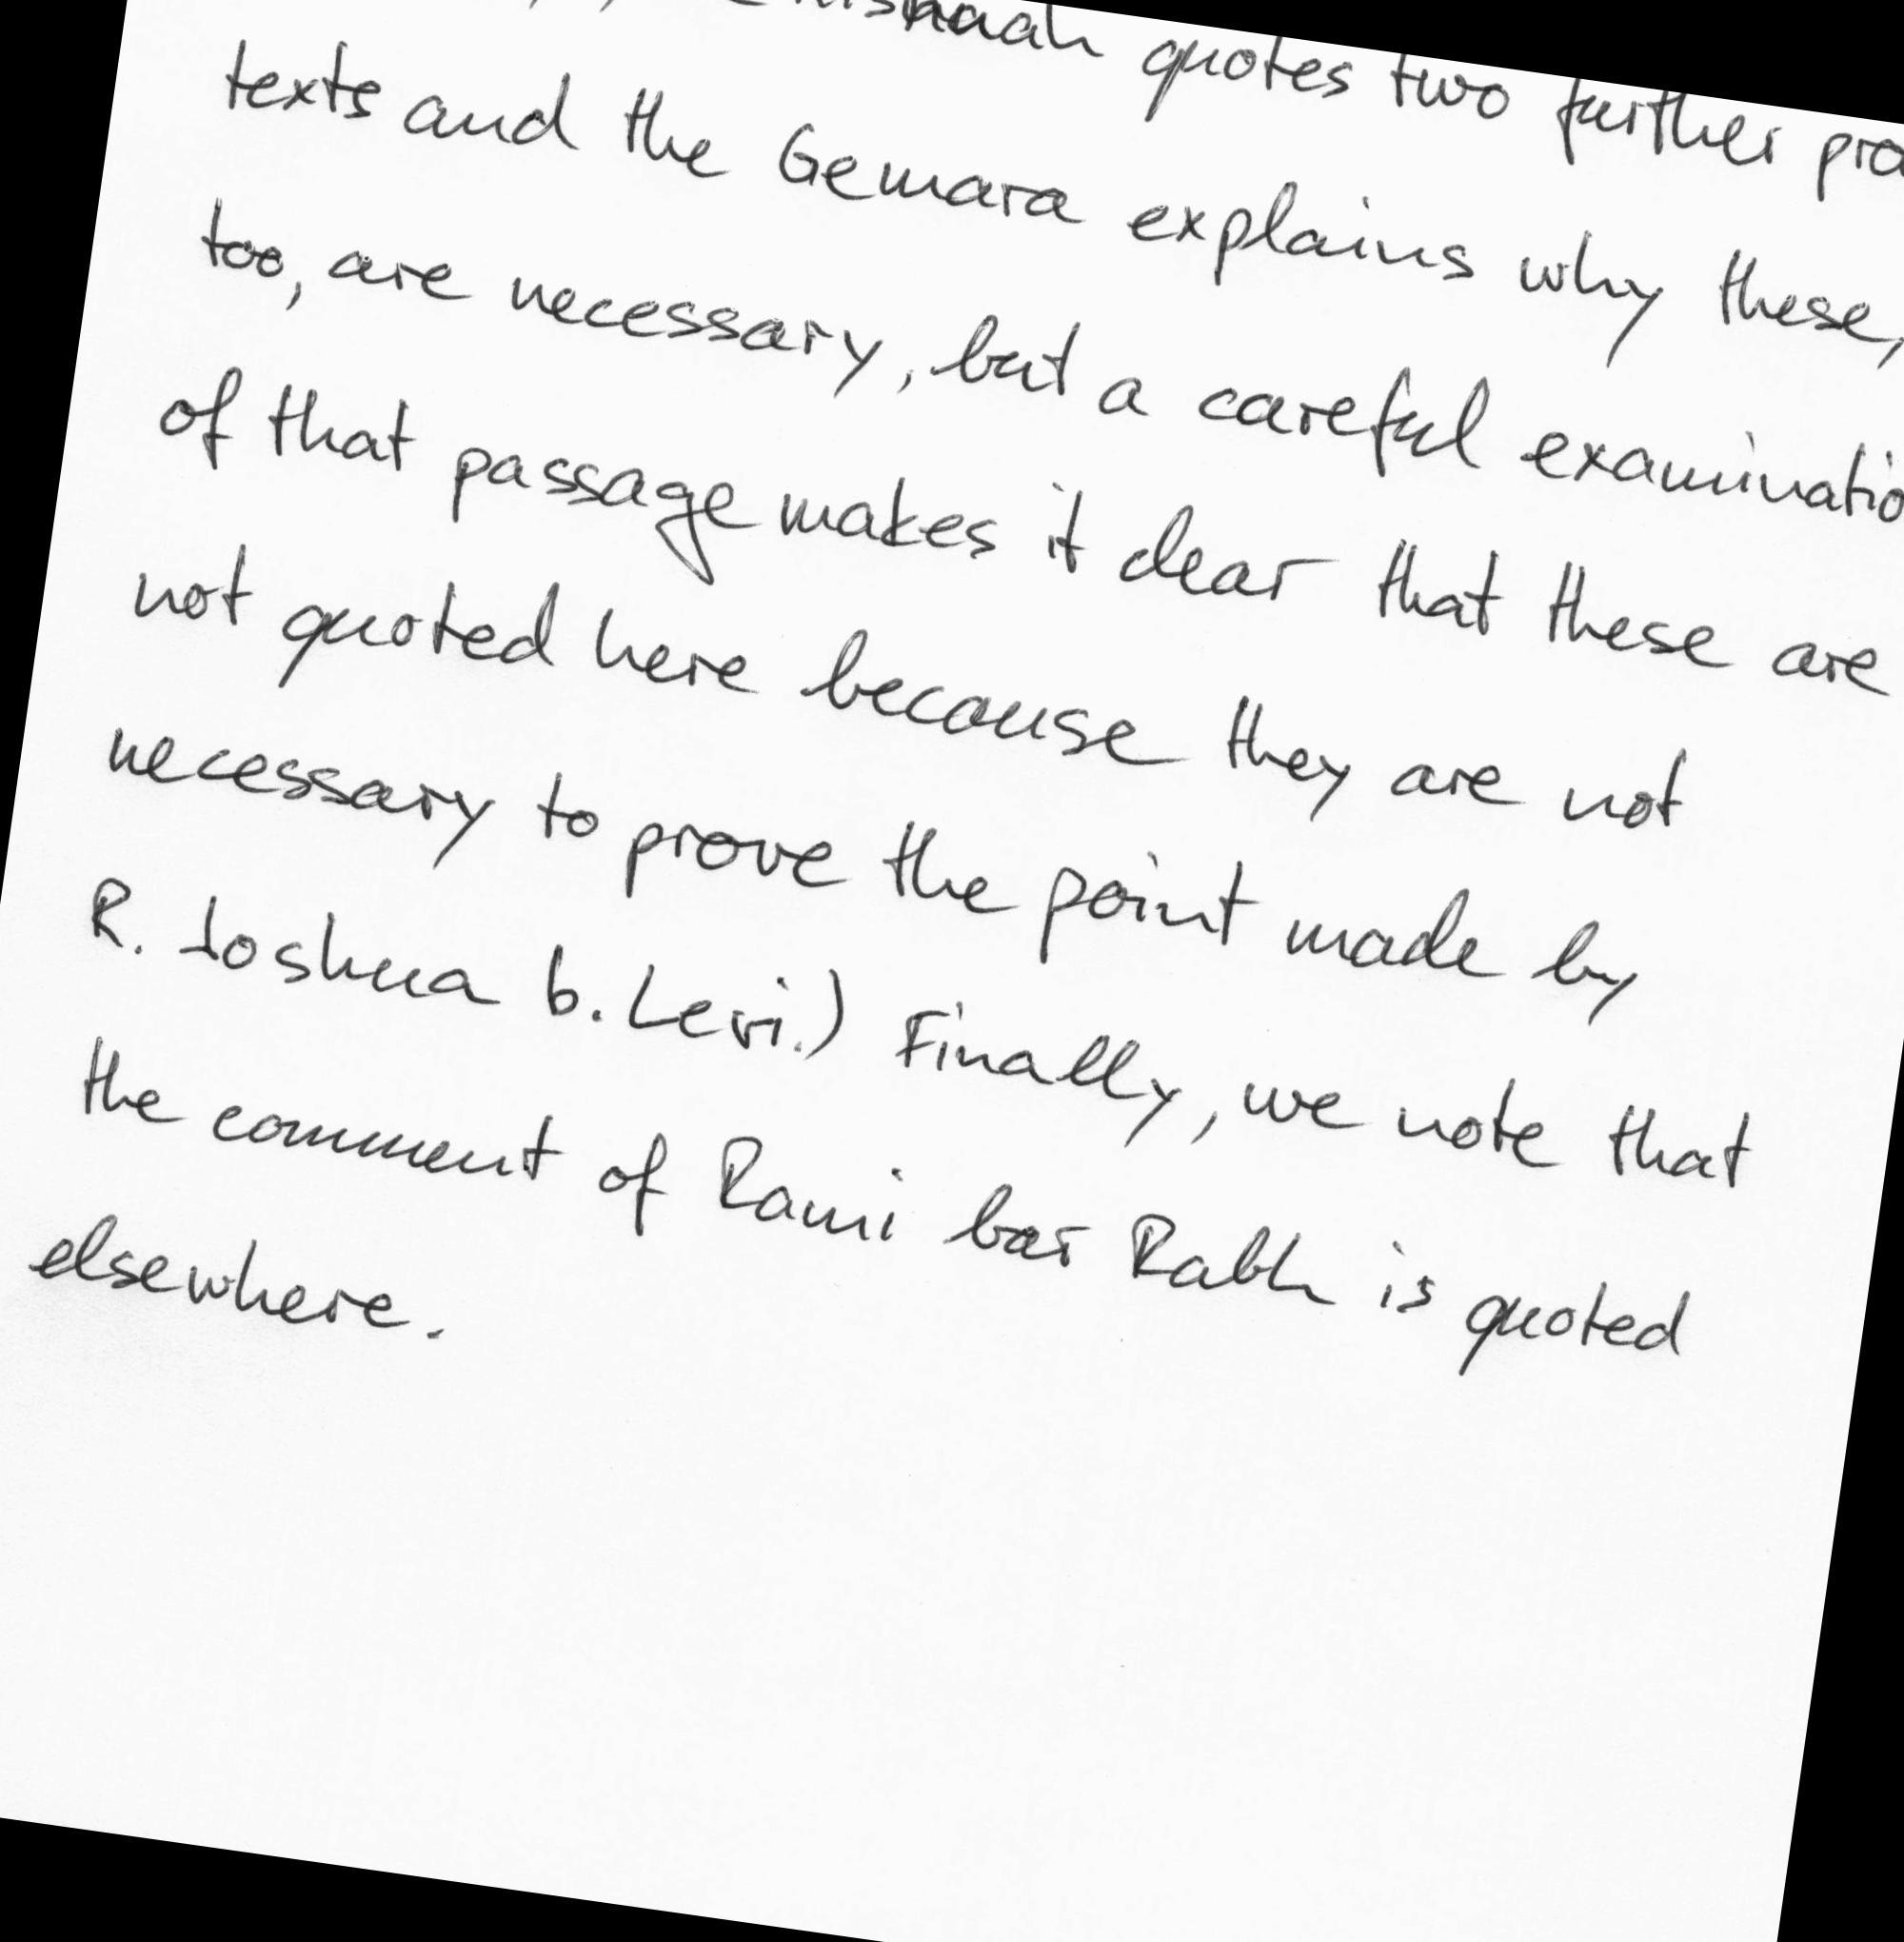 quotes two further
texts and the Gemara explains why these,
too, are necessary, but a careful
of that passage makes it clear that these are
not quoted here because they are not
necessary to prove the point made by
R. Joshua b. Levi.) Finally, we note that
the comment of Rami bar Rabh is quoted
elsewhere.